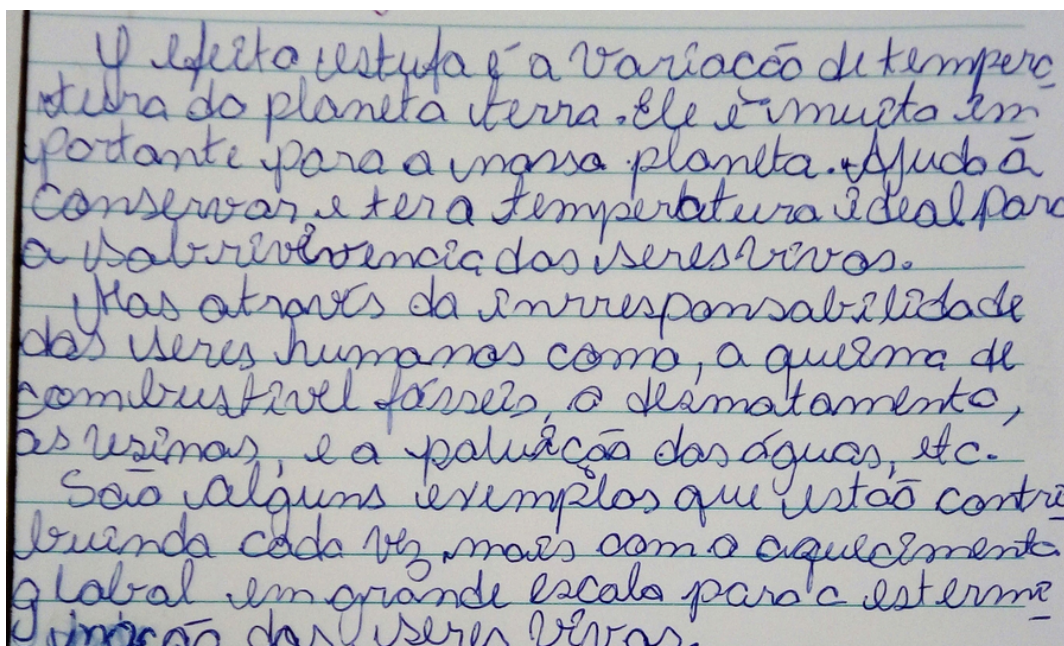 O efeito estufa é a variacão de tempera
tura do planeta terra. Ele é muito im
portante para o nosso planeta. Ajuda à
conservar e ter a temperatura ideal par
a sobrivivencia dos seres vivos.
Mas através da inrresponsabilidade
dos seres humanos como, a queima de
combustível fósseis, o desmatamento,
as usinas, e a poluicão das águas, etc.
São alguns exemplos que estão contri
buindo cada vez mais com o aquecimento
global em grande escala para a estermi
nação dos seres vivos.